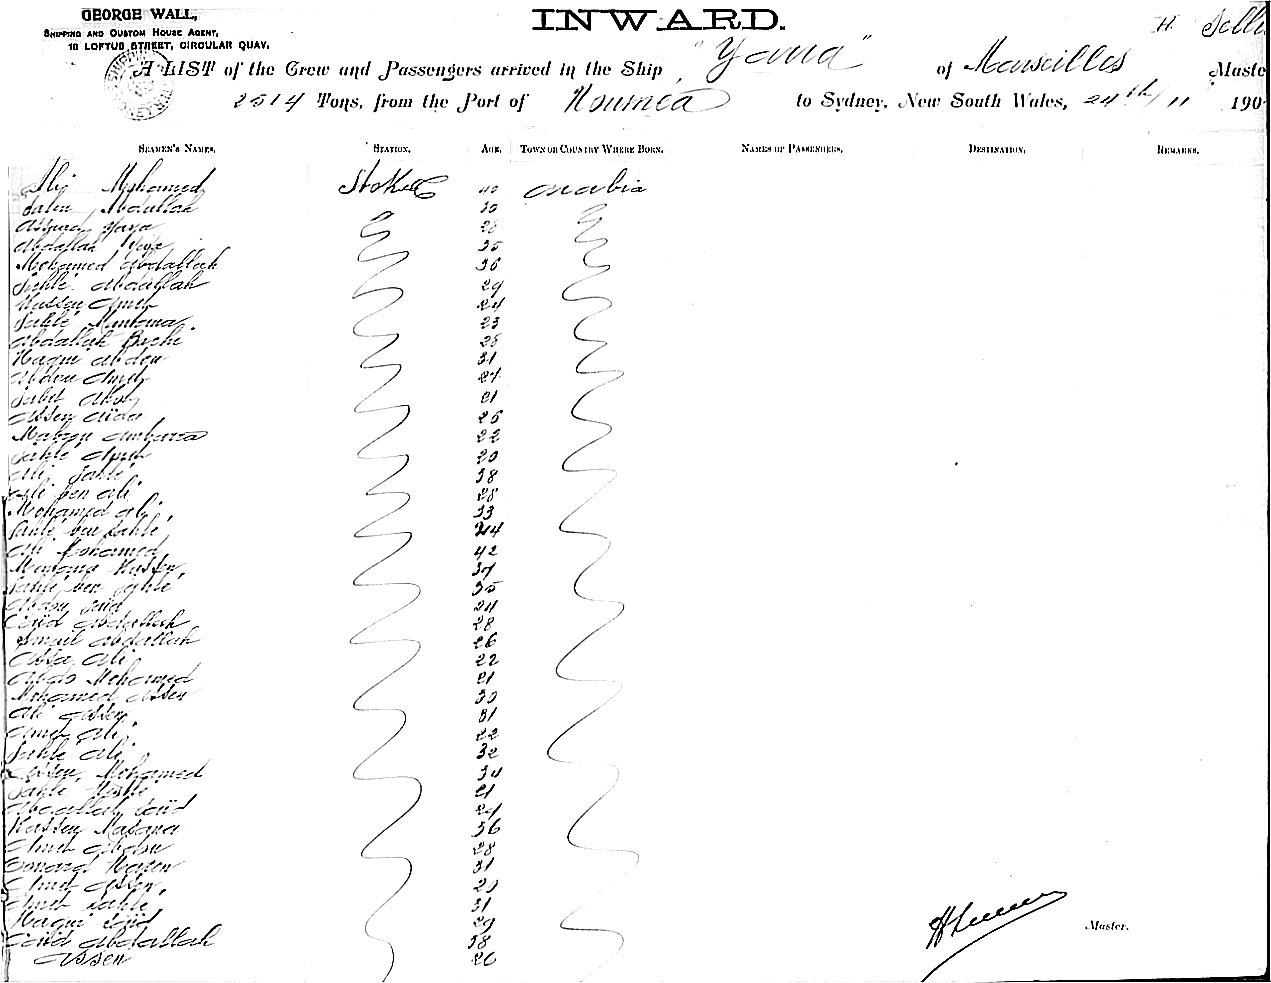 GEORGE WALL,
SHIPPING AND CUSTOM HOUSE AGENT,
10 LOFTUS STREET, CIRCULAR QUAY.
INWARD.
H
A LIST of the Crew and Passengers arrived in the Ship "Yarra" of Marseilles Maste
2514 Tons, from the Port of Noumea to Sydney, New South Wales, 24th/11 190
SEAMEN'S NAMES. STATION. AGE. TOWN OR COUNTRY WHERE BORN. NAMES OF PASSENGERS. DESTINATION. REMARKS.
Ali Mohamed Stoker 40 Arabia
Salem Abdullah 30
Yaya 28
Abdallah Yaya 35
Mohamed Abdallah 36
Sahlé Abdallah 29
Hassen Amer 24
Sahlé 23
Abdallah 28
Hagui Abdou 31
Abdou Amer 27
21
Assen Aïda 26
Mabrou Ambarra 22
Sahlé Amer 20
Ali Sahlé 38
Ali ben Ali 28
Mohamed Ali 33
Sahlé ben Sahlé 44
Ali Mohamed 42
Hassen 37
Sahlé ben Sahlé 35
Abdou Saïd 24
Caïd Abdallah 28
Smail Abdallah 26
Assa Ali 22
Abdo Mohamed 21
Mohamed Assen 30
Ali Assen 31
Amer Ali 22
Sahlé Ali 32
Assen Mohamed 34
Sahlé 21
Abdallah Caïd 29
Hassen 36
Amer Abdou 28
Hassen 31
Amer Assen 29
Amer Sahlé 31
Hagui Caïd 29
Caïd Abdallah 38
Assen 26
Master.